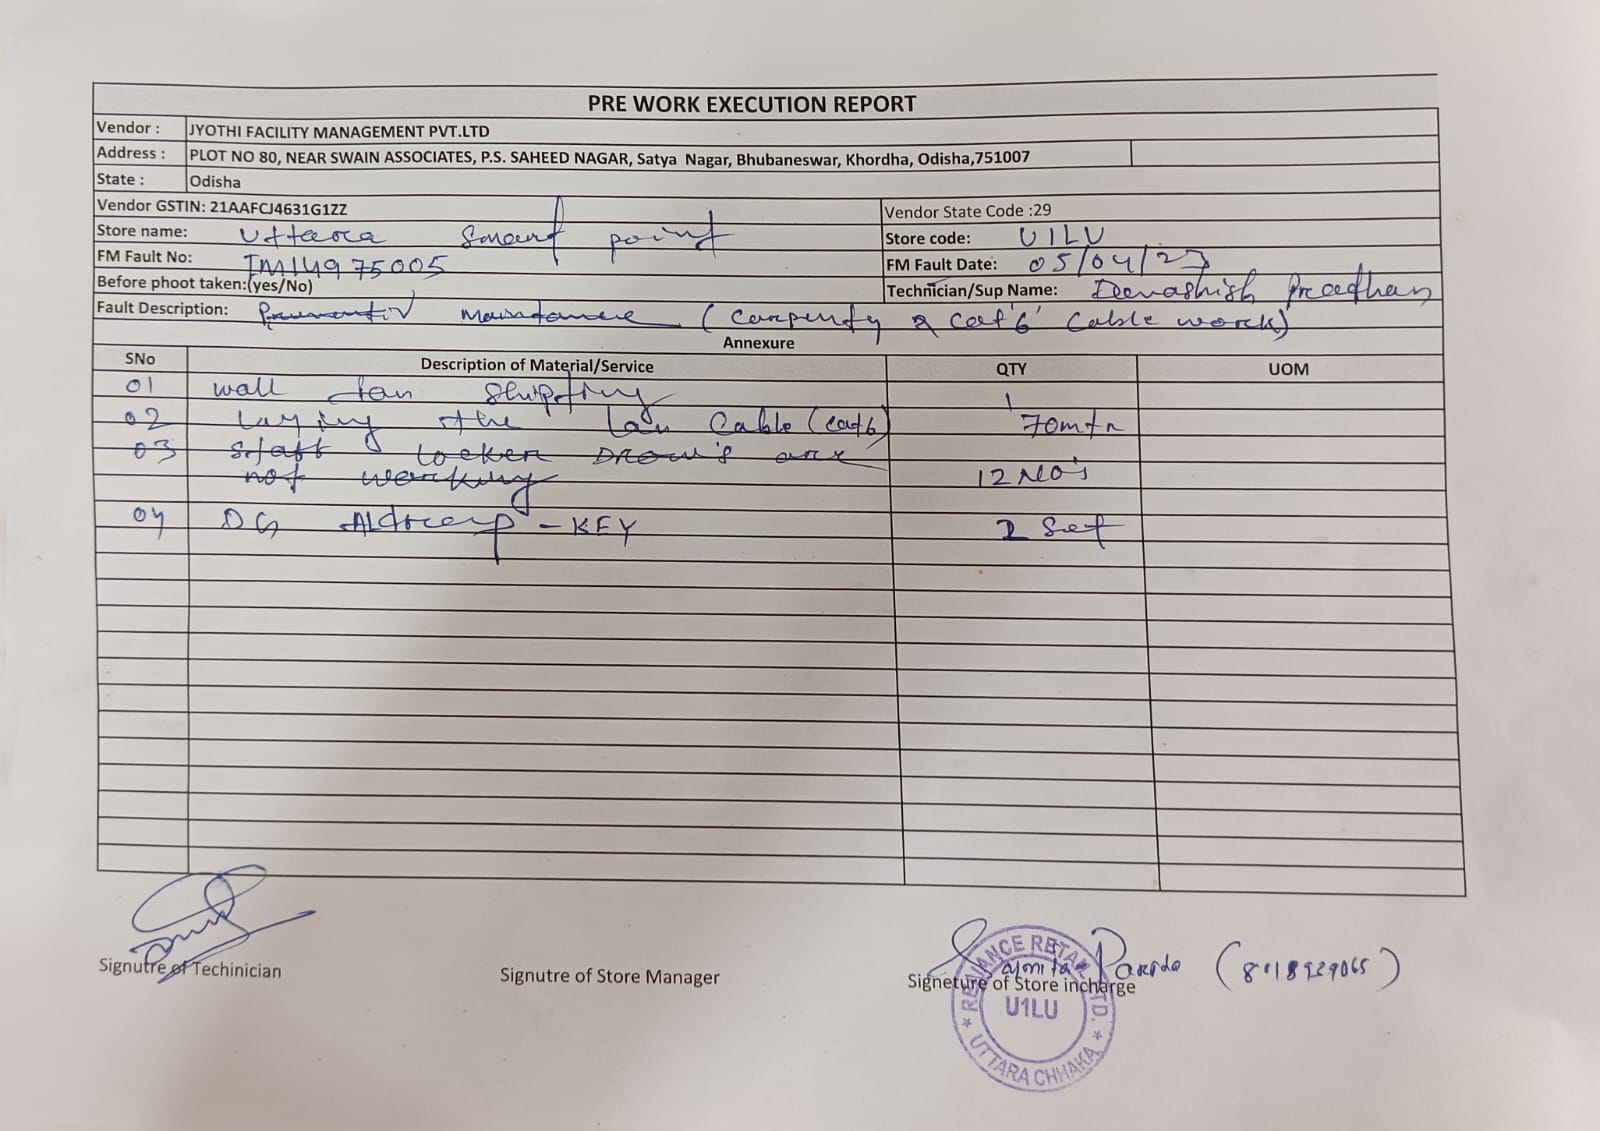 PRE WORK EXECUTION REPORT
Vendor : JYOTHI FACILITY MANAGEMENT PVT.LTD
Address : PLOT NO 80, NEAR SWAIN ASSOCIATES, P.S. SAHEED NAGAR, Satya Nagar, Bhubaneswar, Khordha, Odisha,751007
State : Odisha
Vendor GSTIN: 21AAFCJ4631G1ZZ Vendor State Code :29
Store name: Uttara Smart point Store code: U1LU
FM Fault No: IM14975005 FM Fault Date: 05/04/23
Before phoot taken:(yes/No) Technician/Sup Name: Devashish Pradhan
Fault Description: Maintanance (Carpenty & Cat'6' Cable work)
Annexure
SNo Description of Material/Service QTY UOM
01 wall fan Shipting 1
02 Laying the Lan Cable (cat6) 70mtr
03 Staff Locker Drow's are
not working 12 NO's
04 DG Aldrop - KEY 2 Set
Signutre of Techinician Signutre of Store Manager Signeture of Store incharge
Parida
RELIANCE RETAIL LTD.
U1LU
UTTARA CHHAKA